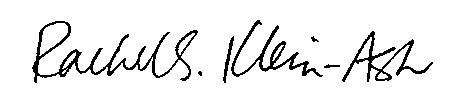 Rachel S. Klein-Ash